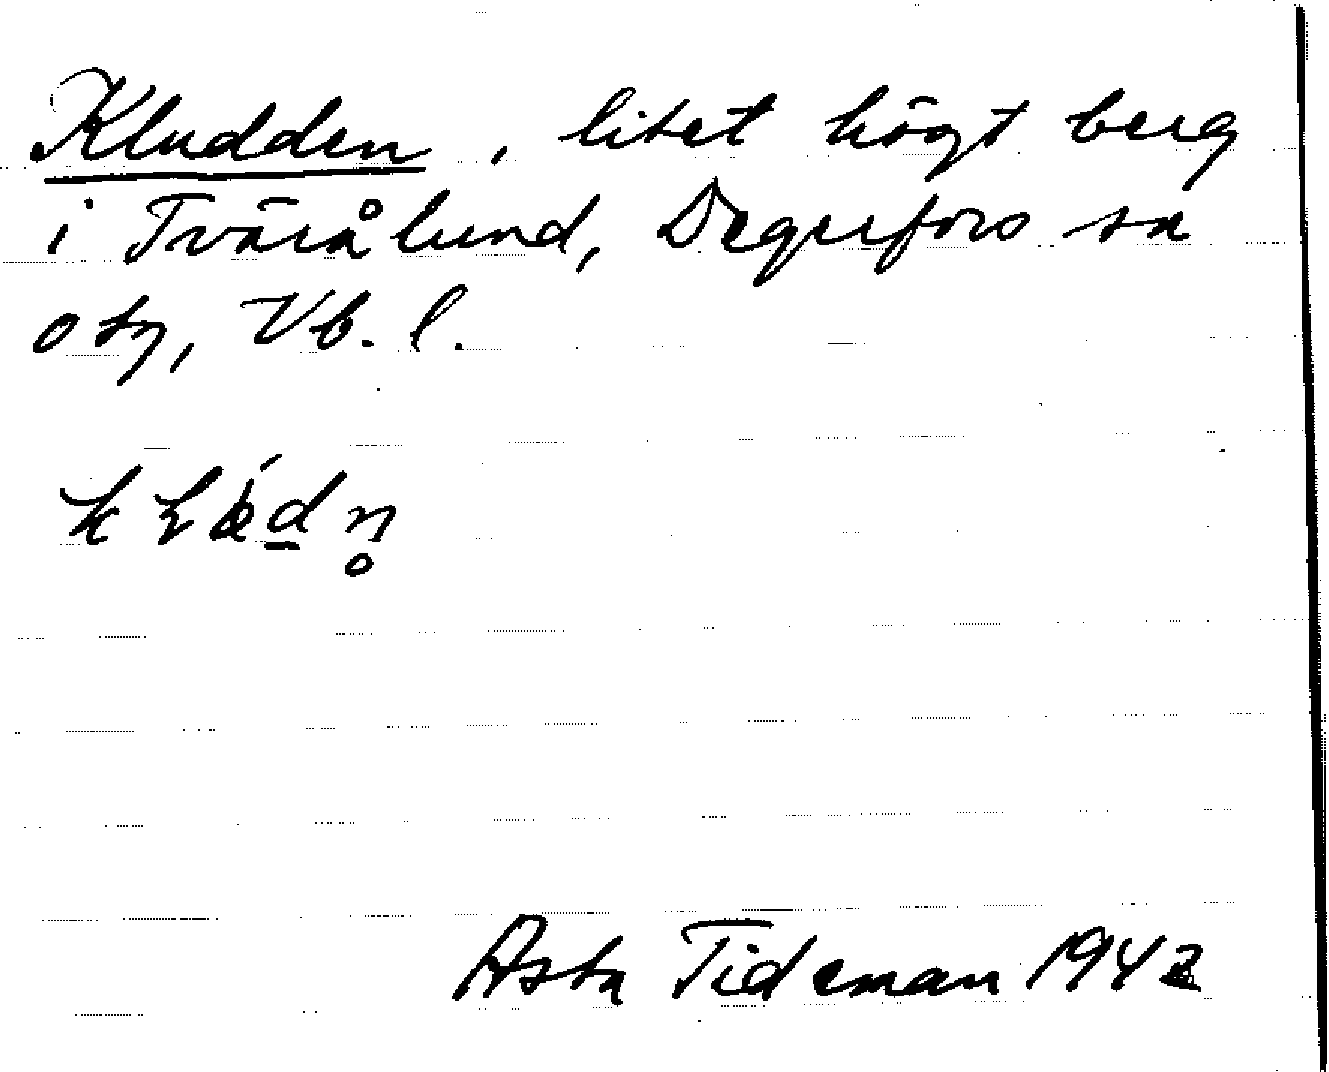 Kludden, litet högt berg
i Tvärålund, Degerfors sn
o tg, Vb. l.
Asta Tideman 1942